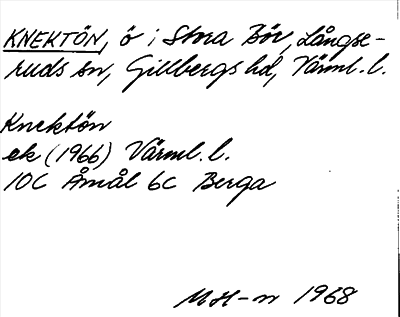 KNEKTÖN, ö i Stora Bör, Långse-
ruds sn, Gillbergs hd, Värml. l.
Knektön
ek (1966) Värml. l.
10C Åmål 6C Berga
MH-n 1968